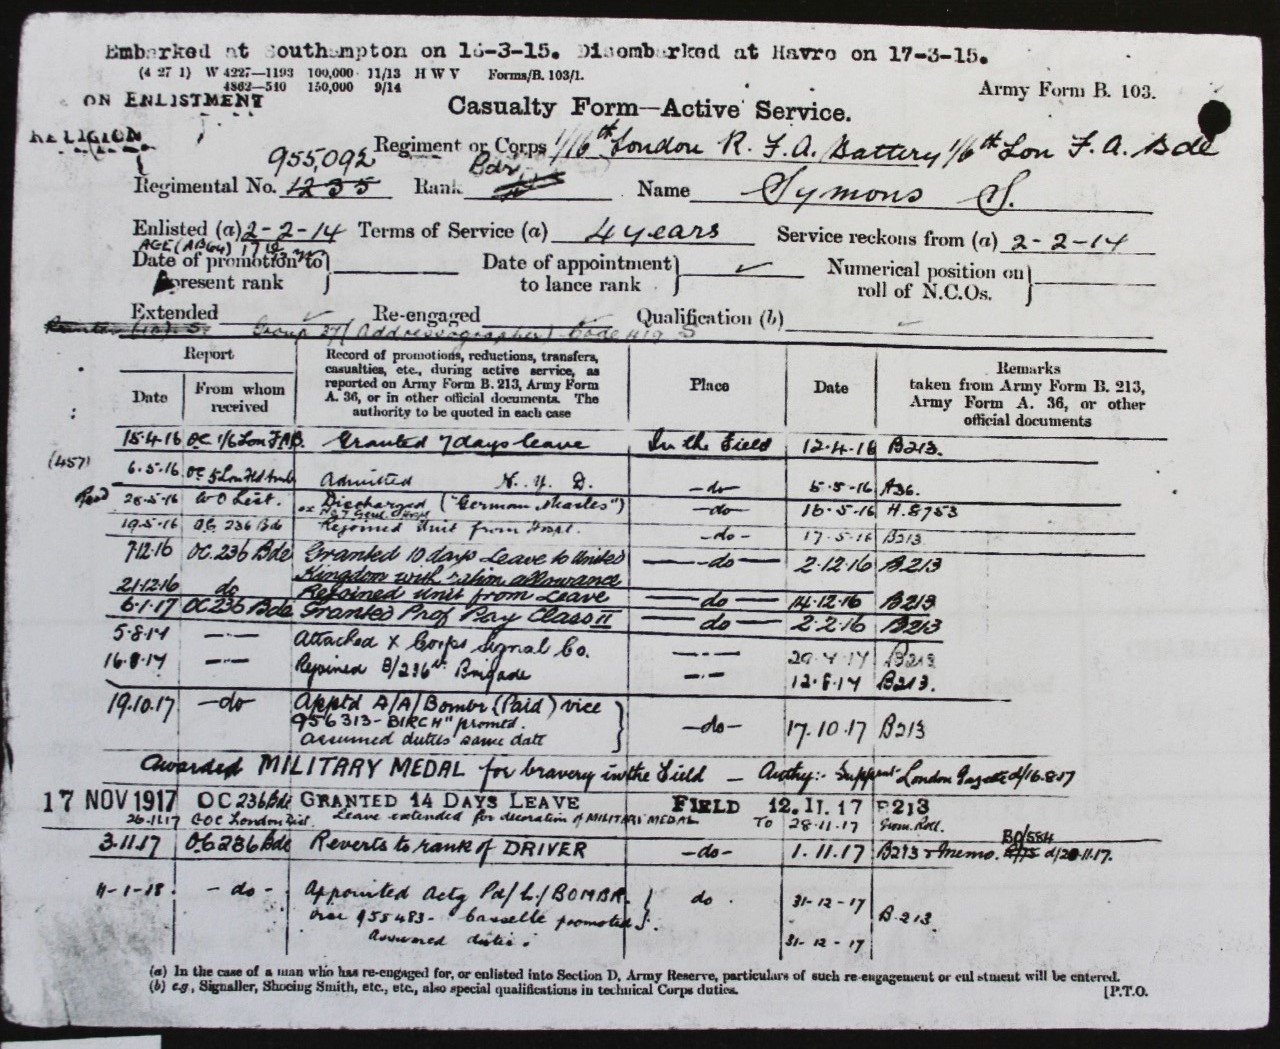 Embarked at Southampton on 16-3-15. Disembarked at Havre on 17-3-15.
(4 27 1) W 4227—1193 100,000 11/13 H W V Forms/B. 103/1.
4862—510 150,000 9/14
Army Form B. 103.
ON ENLISTMENT
Casualty Form—Active Service.
RELIGION
Regiment or Corps 1/16th London R. F. A. Battery 1/6th Lon F. A. Bde
955,092
Regimental No. 1235 Rank Bdr. Name Symons S.
Enlisted (a) 2-2-14 Terms of Service (a) 4 years Service reckons from (a) 2-2-14
AGE (AB64) 17
Date of promotion to present rank } Date of appointment to lance rank } ✓ Numerical position on roll of N.C.Os. }
Extended ✓ Re-engaged ✓ Qualification (b) ✓
Group 37 (Addressographer) Code 419 S
Report
Date From whom received
Record of promotions, reductions, transfers, casualties, etc., during active service, as reported on Army Form B. 213, Army Form A. 36, or in other official documents. The authority to be quoted in each case
Place
Date
Remarks taken from Army Form B. 213, Army Form A. 36, or other official documents
15.4.16 OC 1/6 Lon F.A.B. Granted 7 days leave In the Field 12.4.16 B213.
(457)
6.5.16 OC 5 Lon Fld Amb Admitted N. Y. D. -do- 5-5-16 A36.
28-5-16 WO List. Discharged ("German Measles") -do- 16-5-16 H.8753
ex No 7 Genl Hospl
19.5-16 OC 236 Bd Rejoined Unit from Hospl. -do- 17-5-16 B213
7.12.16 OC.236 Bde Granted 10 days Leave to United Kingdom with ration allowance —do— 2.12.16 B213
21.12.16 do Rejoined Unit from Leave —do— 14.12.16 B213
6.1.17 OC 236 Bde Granted Prof Pay Class II —do— 2.2.16 B213
5.8.17 —·— Attached X Corps Signal Co. —·— 29.4.17 B213
16.8.17 —·— Rejoined B/236th Brigade —·— 12.8.17 B213.
19.10.17 —do— Apptd A/A/Bombr (Paid) vice
956313 - BIRCH" promtd.
assumed duties same date } —do— 17.10.17 B213
Awarded MILITARY MEDAL for bravery in the Field — Authy:- Supplent London Gazette d/16.8.17
17 NOV 1917 OC 236 Bde GRANTED 14 DAYS LEAVE FIELD 12.11.17 B213
26.11.17 GOC London Dist. Leave extended for decoration of MILITARY MEDAL TO 28.11.17 Nom. Roll.
3.11.17 OC 236 Bde Reverts to rank of DRIVER —do— 1.11.17 B213 & Memo. BO/584 d/28.11.17.
11-1-18. - do - Appointed Actg Pd/L/BOMBR. } do . 31-12-17
vice 955483 - Casselle promoted } B.213.
Assumed duties. 31-12-17
(a) In the case of a man who has re-engaged for, or enlisted into Section D, Army Reserve, particulars of such re-engagement or enlistment will be entered.
(b) e.g., Signaller, Shoeing Smith, etc., etc., also special qualifications in technical Corps duties.
[P.T.O.